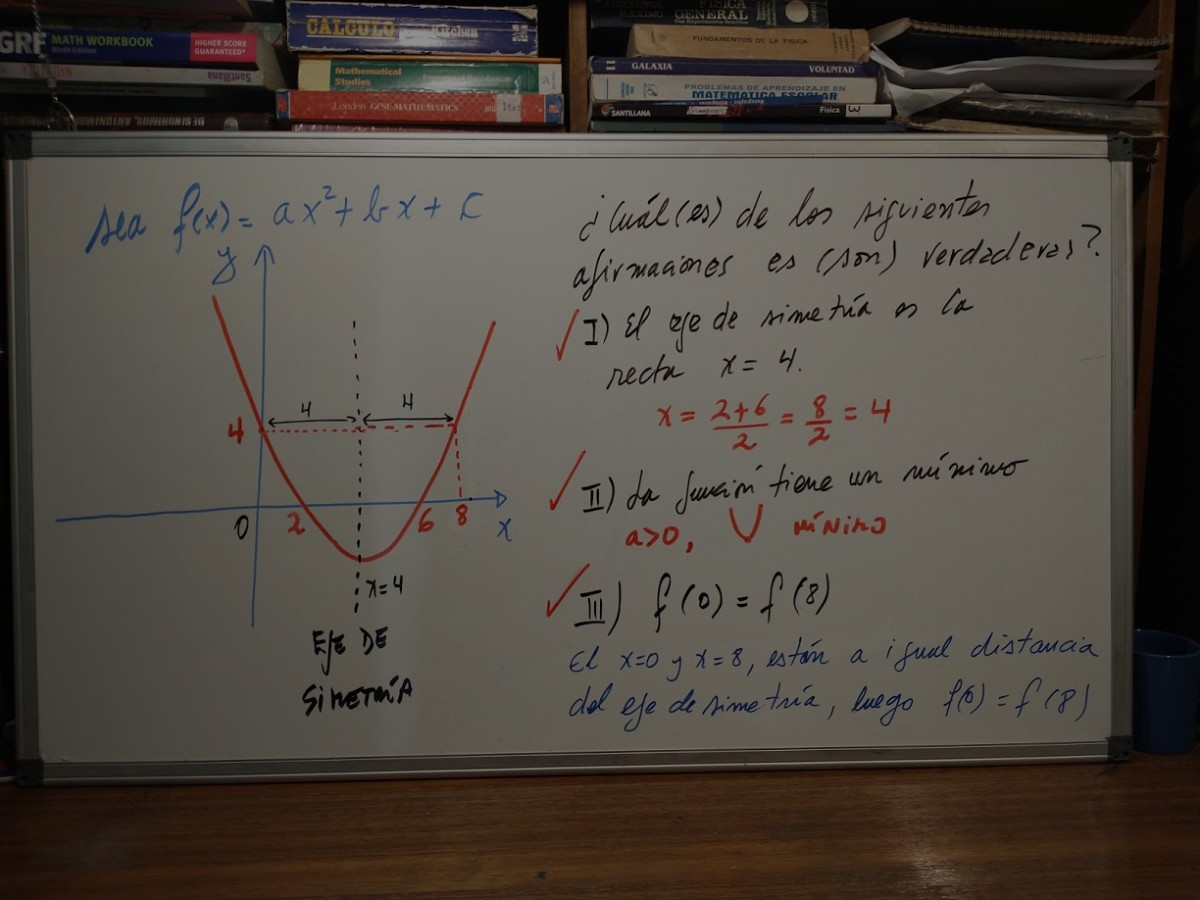 GRE MATH WORKBOOK
Ninth Edition
HIGHER SCORE
GUARANTEED*
Santillana
CALCULO
Mathematical
Studies
London GCSE MATHEMATICS
FISICA
GENERAL
FUNDAMENTOS DE LA FISICA
II GALAXIA VOLUNTAD
PROBLEMAS DE APRENDIZAJE EN
MATEMATICA ESCOLAR
SANTILLANA Física 3
sea f(x) = ax² + bx + c
y
4 4
4
0 2 6 8
x
x=4
EJE DE
SIMETRÍA
¿Cuál(es) de las siguientes
afirmaciones es (son) verdaderas?
✓ I) El eje de simetría es la
recta x = 4.
x = 2+6/2 = 8/2 = 4
✓ II) La función tiene un mínimo
a>0, ∪ MÍNIMO
✓ III) f(0) = f(8)
El x=0 y x=8, están a igual distancia
del eje de simetría, luego f(0) = f(8)